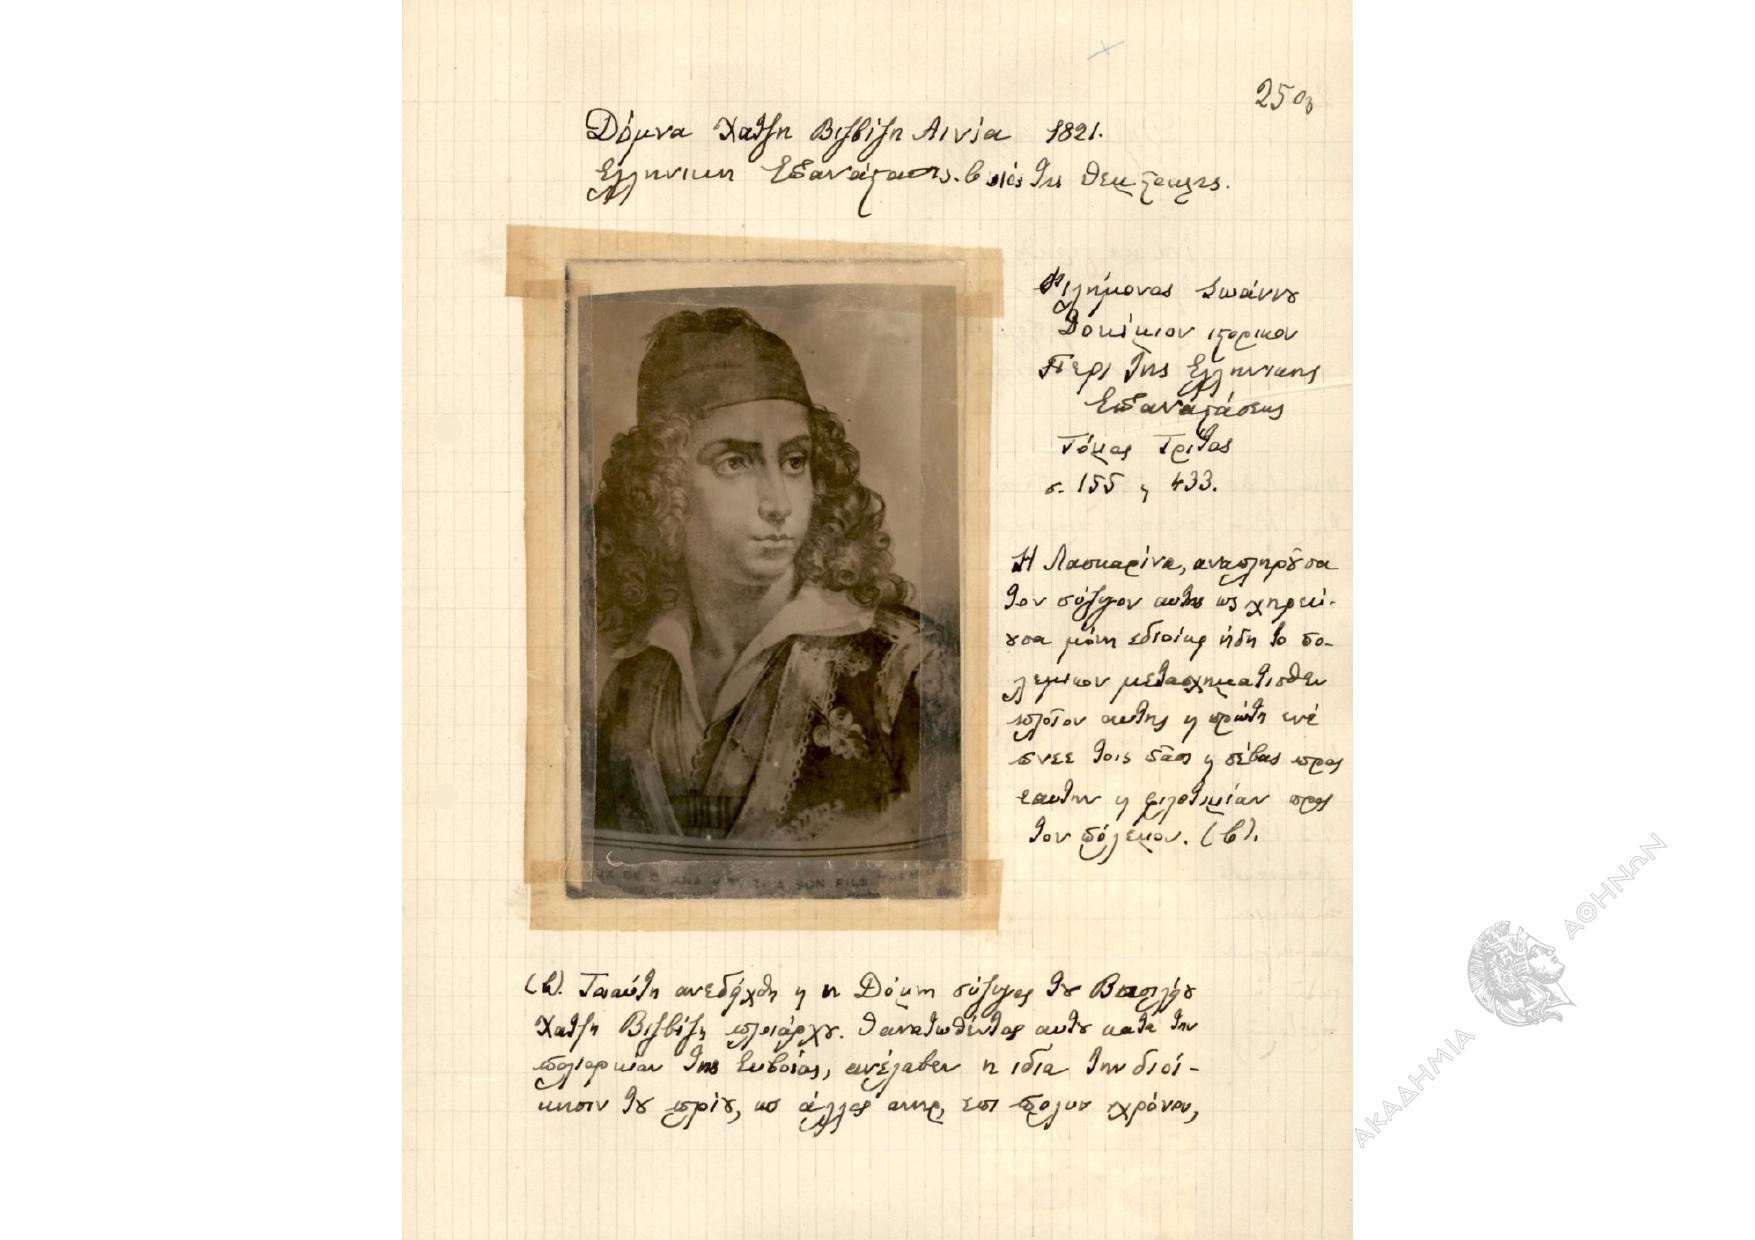 250
Δόμνα Χατζη Βιζβίζη Αινία 1821.
Ελληνικη Επανάστασις. υιός της Θεμιστοκλης.
Φιλήμονος Ιωάννου
Δοκίμιον ιστορικον
Περι της Ελληνικης
Επαναστάσεως
Τόμος Τρίτος
σ. 155 κ 433.
Η Λασκαρίνα, αναπληρούσα
τον σύζυγον αυτης ως χηρεύ-
ουσα μόνη εδιοίκει ήδη το πο-
λεμικον μετασχηματισθεν
πλοίον αυτης κ πρώτη ενέ
πνεε τοις πάσι κ σέβας προς
εαυτην κ φιλοτιμίαν προς
τον πόλεμον. (6).
(6). Τοιαύτη ανεδείχθη κ η Δόμνη σύζυγος του Βασιλείου
Χατζη Βιζβίζη πλοιάρχου. Θανατωθέντος αυτου κατα την
πολιορκίαν της Ευβοίας, ανέλαβεν η ιδία την διοί-
κησιν του, ως άλλος ανηρ, επι πολυν χρόνον,
SON FILS
ΑΚΑΔΗΜΙΑ ΑΘΗΝΩΝ